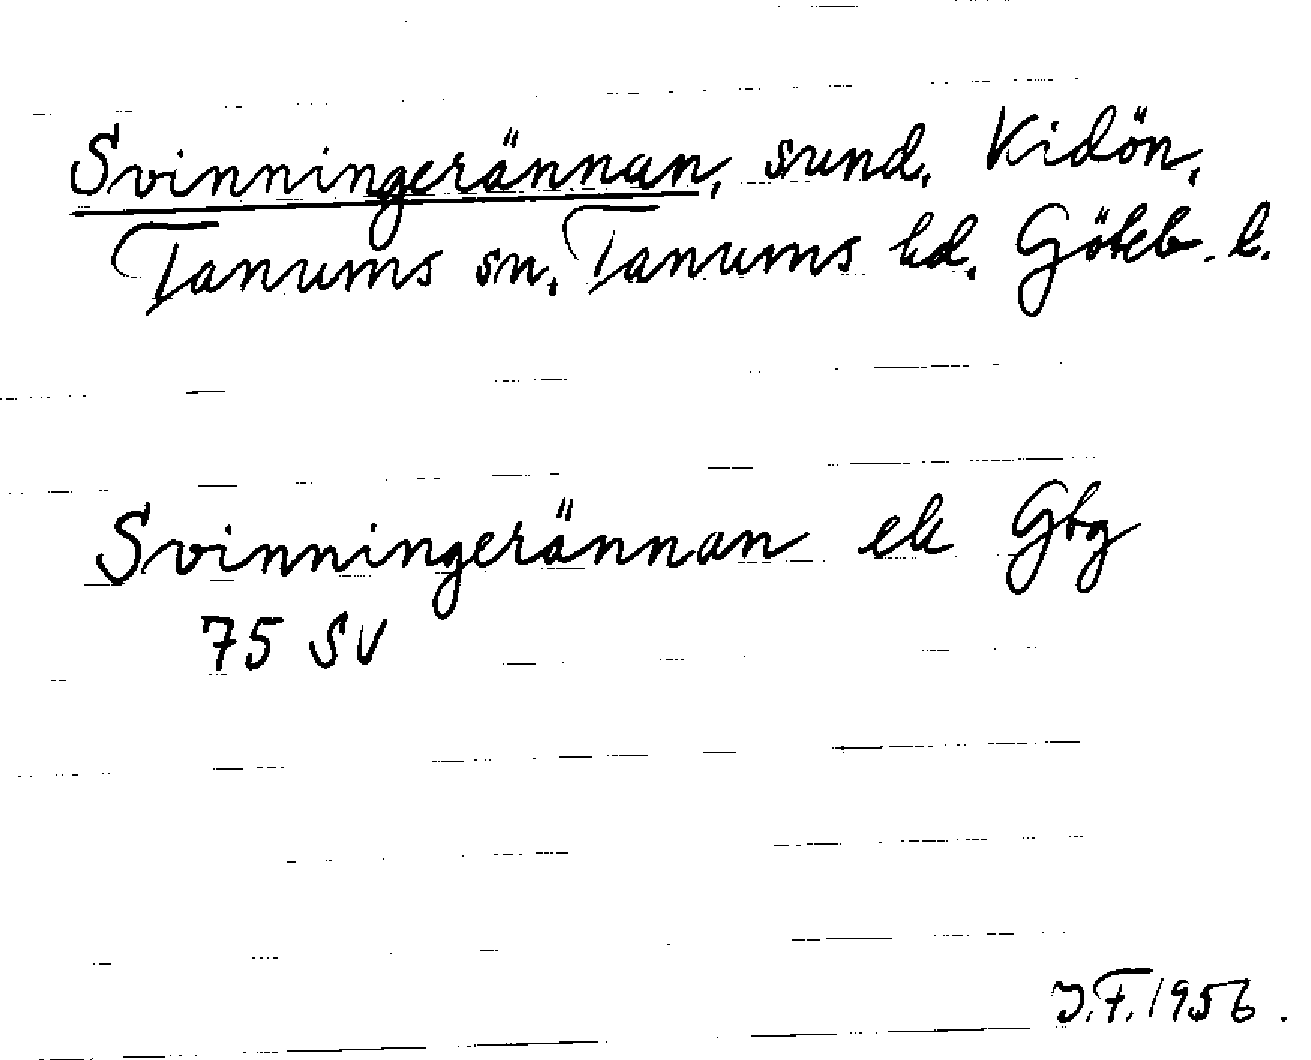 Svinningerännan, sund, Kidön,
Tanums sn, Tanums hd, Göteb. l.
Svinningerännan ek Gbg
75 SV
J.F. 1956.